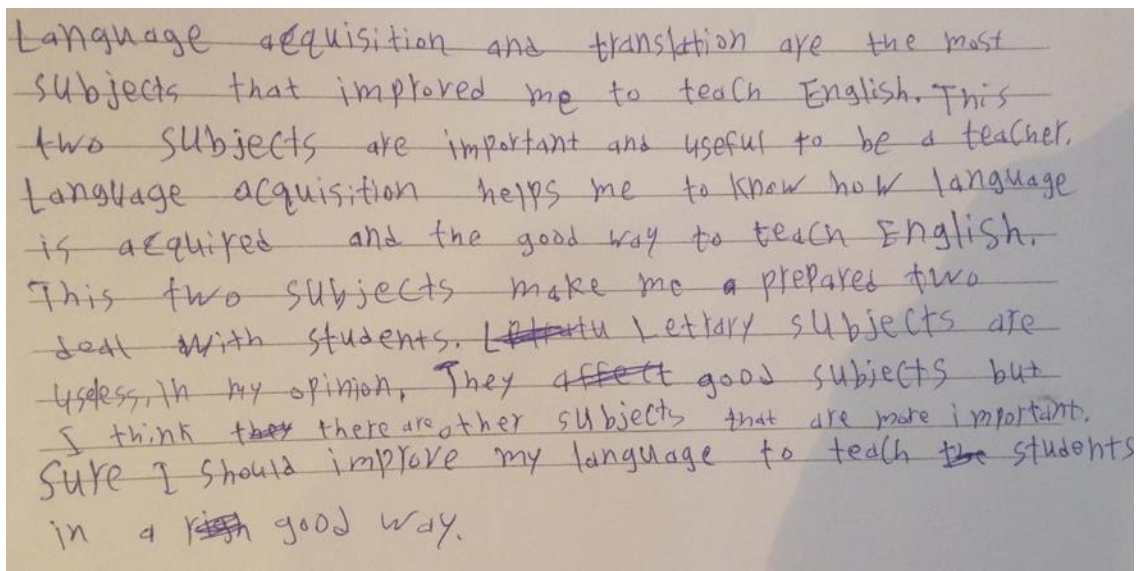 Language acquisition and translation are the most
subjects that improved me to teach English. This
two subjects are important and useful to be a teacher.
Language acquisition helps me to know how language
is acquired and the good way to teach English.
This two subjects make me a prepared two
deal with students. Letrary subjects are
useless, in my opinion, They affect good subjects but
I think they there are other subjects that are more important.
Sure I should improve my language to teach the students
in a good way.